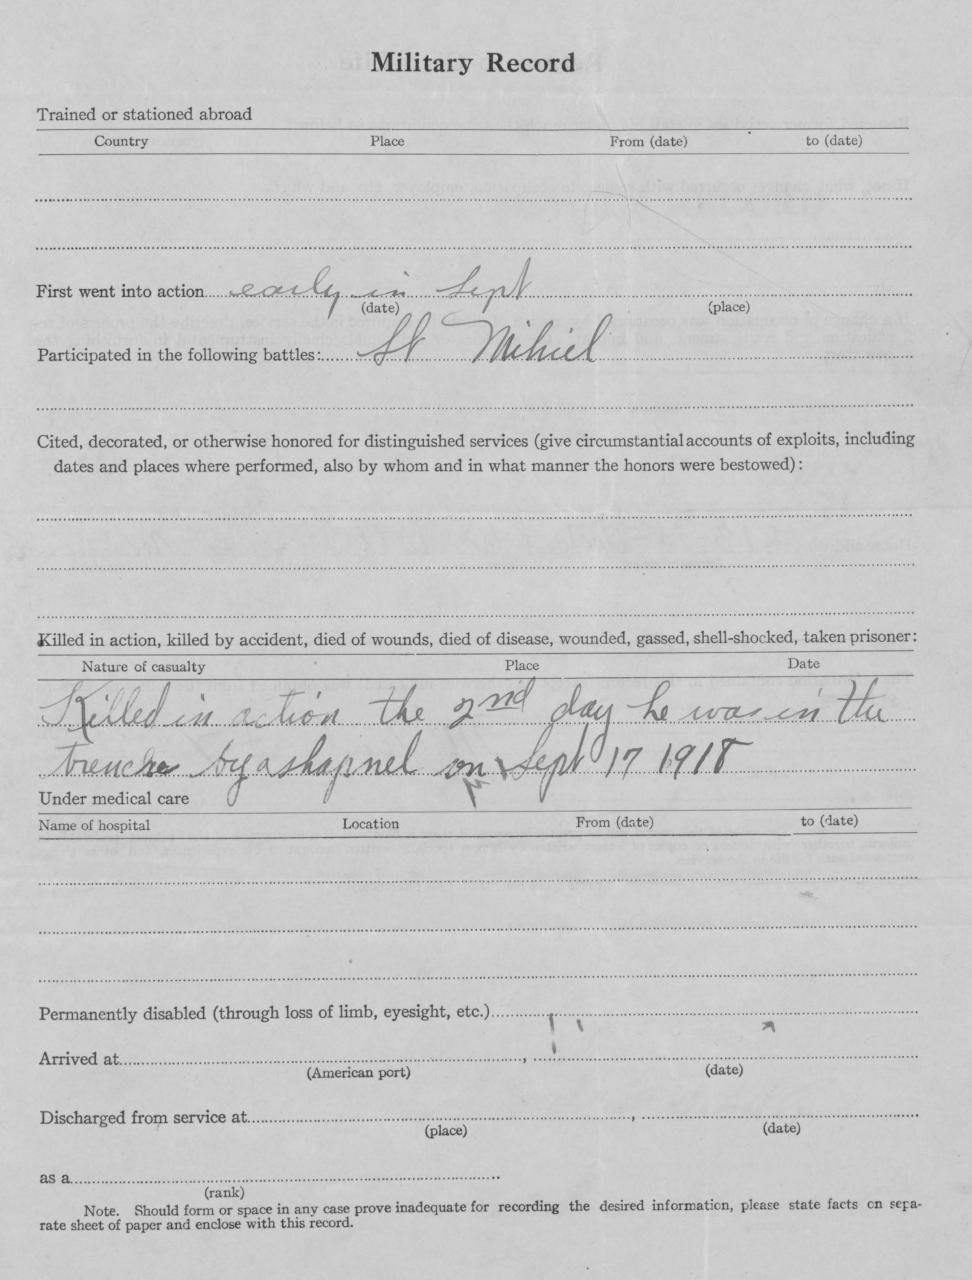 Military Record
Trained or stationed abroad
Country Place From (date) to (date)
First went into action early in Sept
(date) (place)
Participated in the following battles: St Mihiel
Cited, decorated, or otherwise honored for distinguished services (give circumstantial accounts of exploits, including
dates and places where performed, also by whom and in what manner the honors were bestowed):
Killed in action, killed by accident, died of wounds, died of disease, wounded, gassed, shell-shocked, taken prisoner:
Nature of casualty Place Date
Killed in action the 2nd day he was in the
trenche by a shapnel on Sept 17 1918
Under medical care
Name of hospital Location From (date) to (date)
Permanently disabled (through loss of limb, eyesight, etc.)
Arrived at , 
(American port) (date)
Discharged from service at ,
(place) (date)
as a
(rank)
Note. Should form or space in any case prove inadequate for recording the desired information, please state facts on sepa-
rate sheet of paper and enclose with this record.